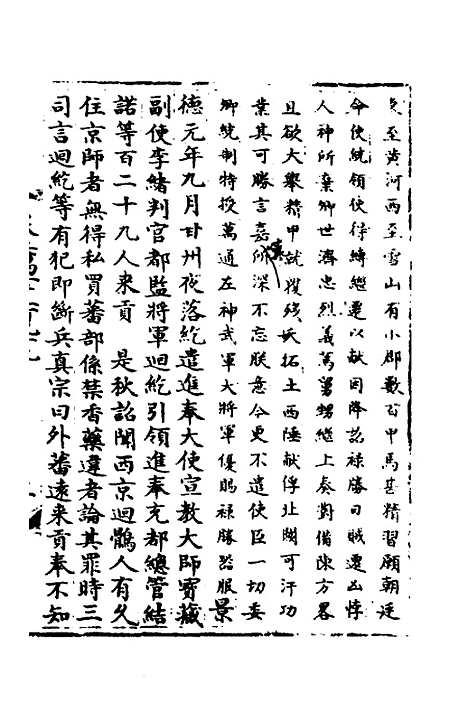 東至黃河西至雪山有小郡數百甲馬甚精習願朝廷
命使統領使得縛繼遷以獻因降詔祿勝曰賊遷凶悖
人神所棄卿世濟忠烈義篤舅甥繼上奏對備陳方畧
且欲大舉精甲就覆殘妖拓土西陲献俘北闕可汗功
業其可勝言嘉所深不忘朕意今更不遣使臣一切委
卿統制特授萬通左神武軍大將軍優賜祿勝器服景
德元年九月甘州夜落紇遣進奉大使宣教大師寶藏
副使李緒判官都監將軍迴紇引領進奉充都總管結
諾等百二十九人来貢　是秋詔聞西京迴鶻人有久
住京師者無得私買蕃部係禁香藥違者論其罪時三
司言迴紇等有犯即斷兵真宗曰外蕃遠来貢奉不知